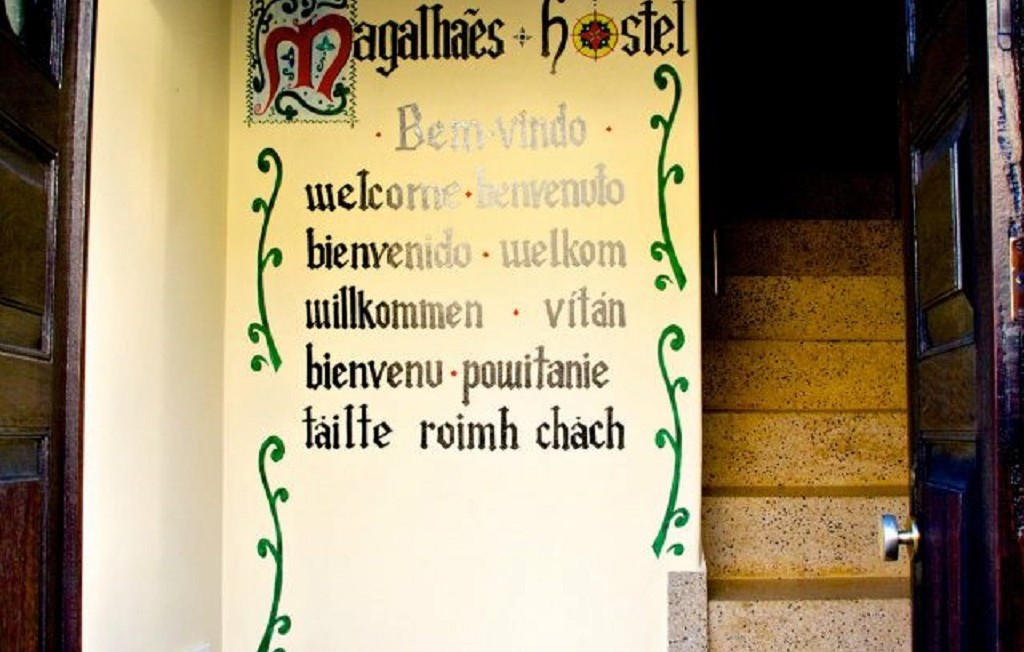 Magalhães hostel
Bem-vindo
welcome · benvenuto
bienvenido · welkom
willkommen · vítán
bienvenu · powitanie
táilte roimh chách